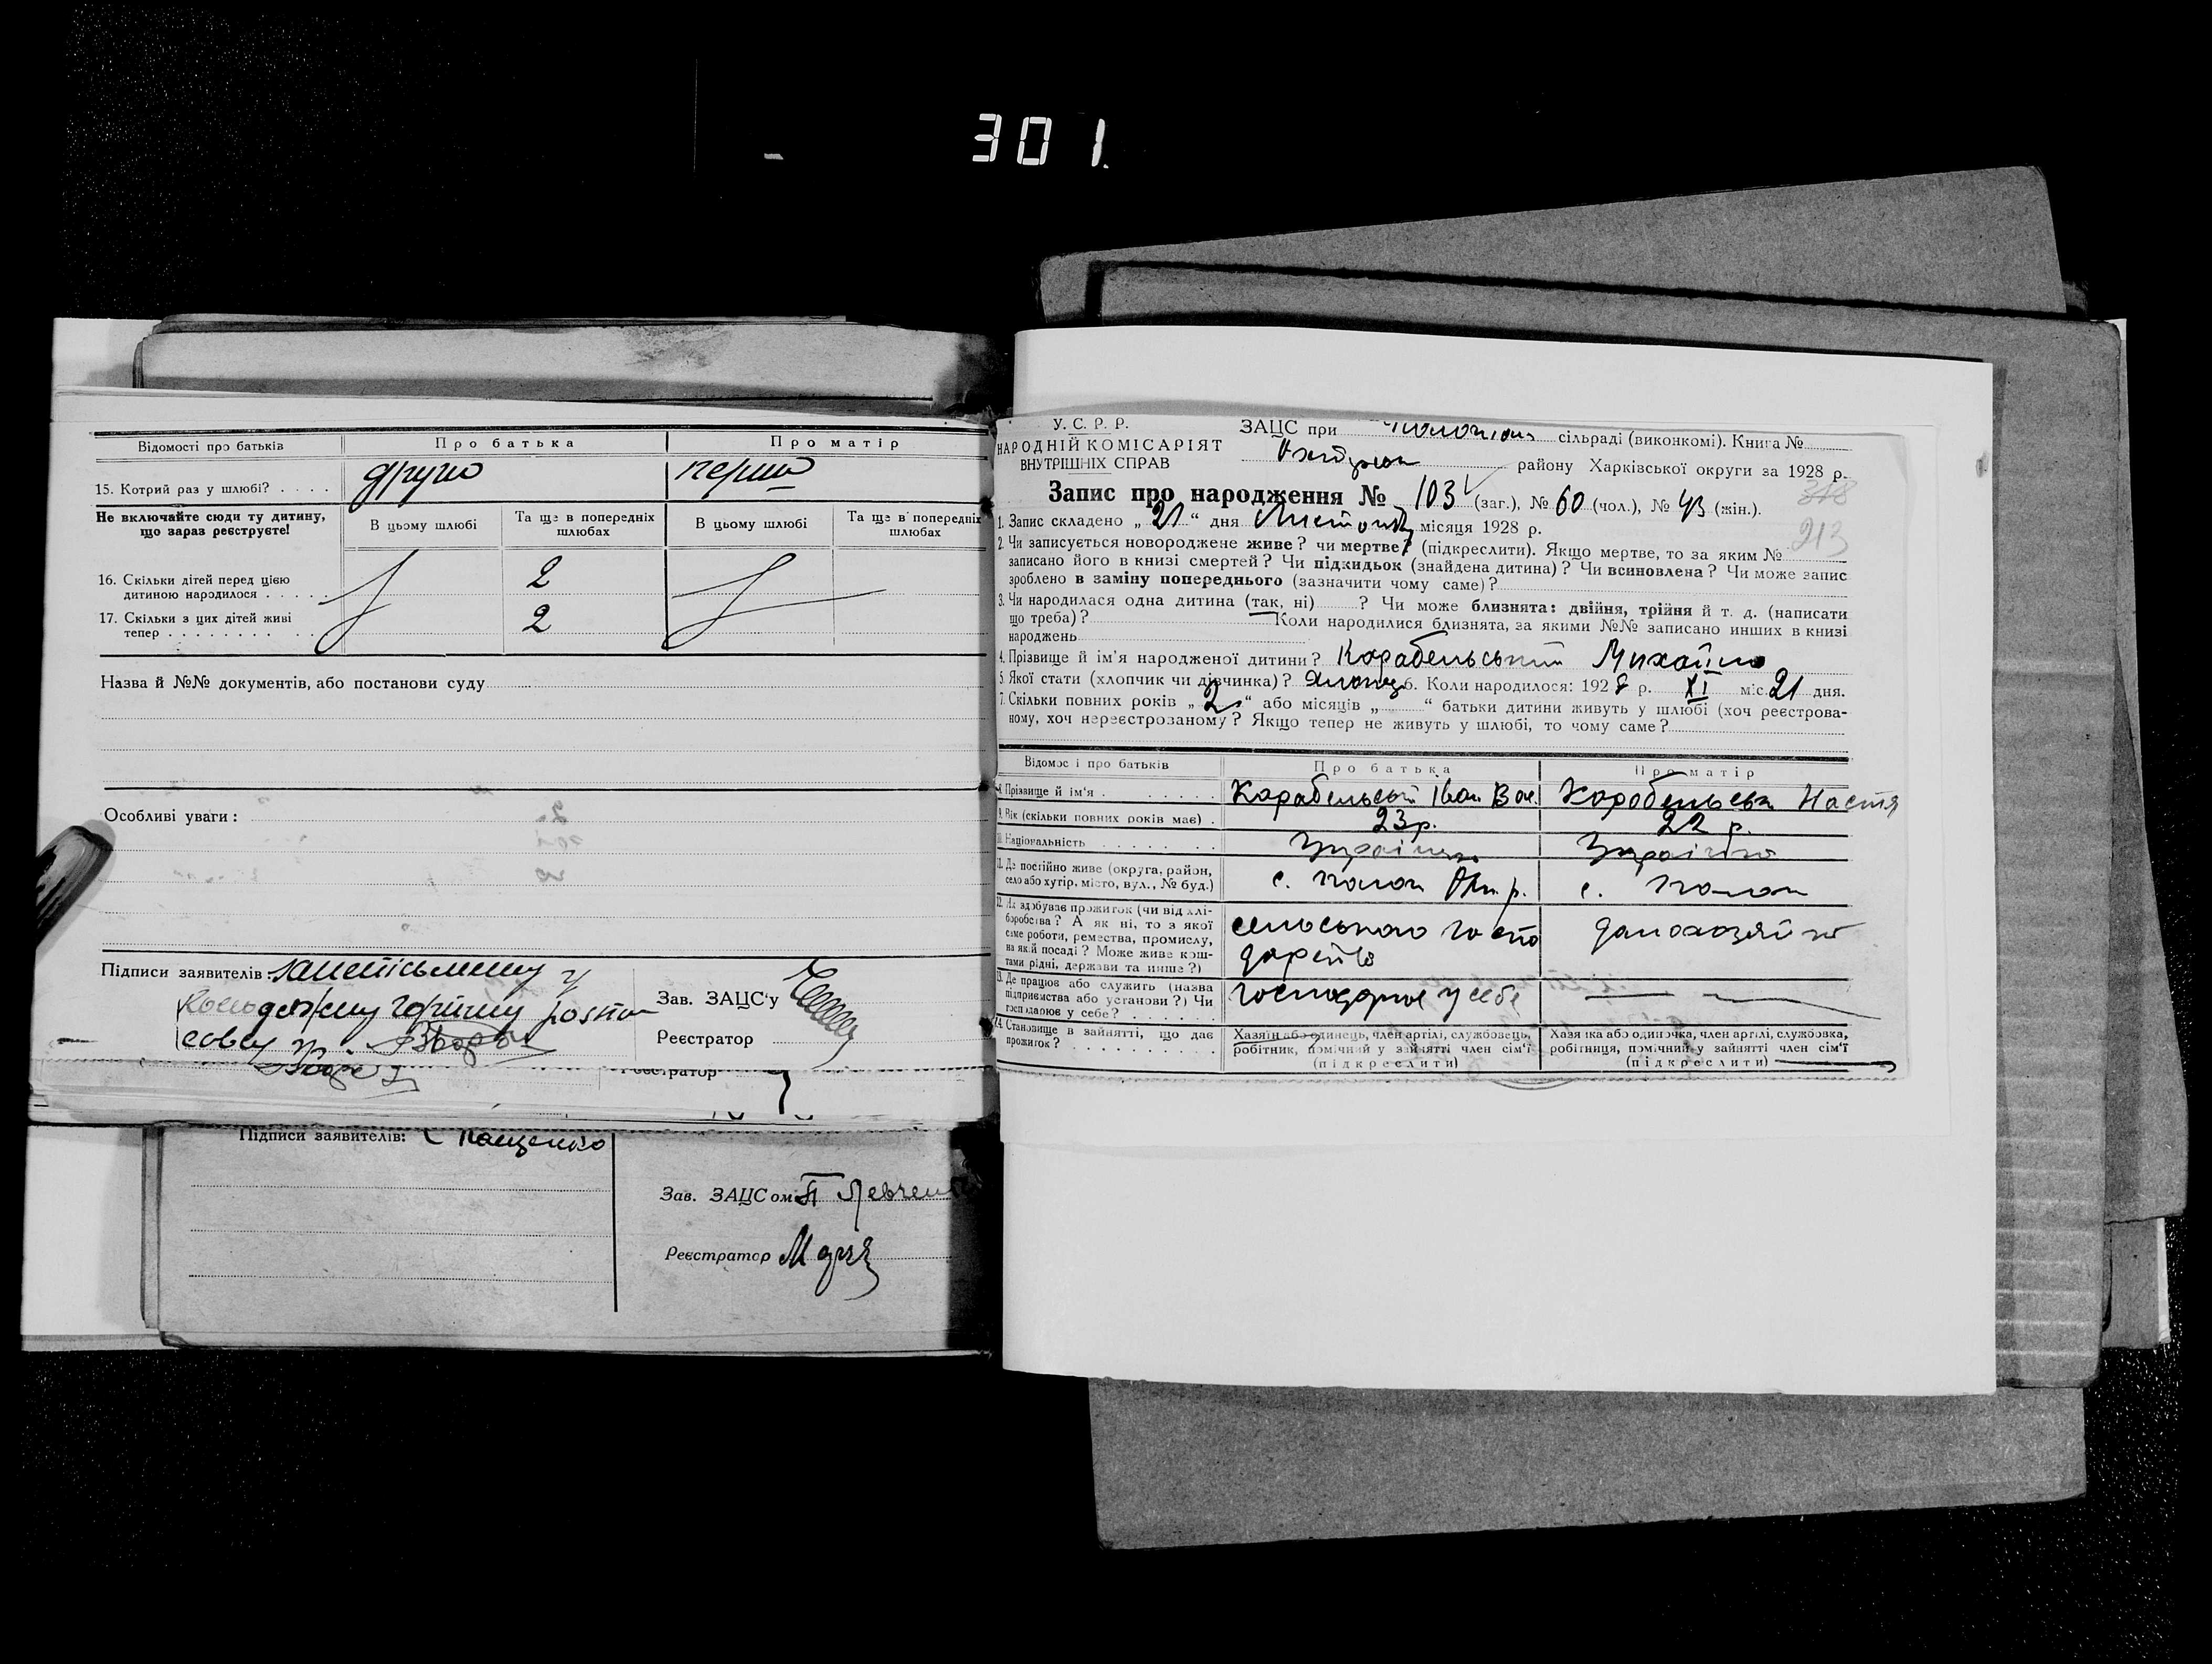 301
Відомості про батьків
Про батька
Про матір
15. Котрий раз у шлюбі?
Не включайте сюди ту дитину,
що зараз реєструєте!
В цьому шлюбі
Та ще в попередніх
шлюбах
В цьому шлюбі
Та ще в попередніх
шлюбах
16. Скільки дітей перед цією
дитиною народилося
2
17. Скільки з цих дітей живі
тепер
2
Назва й №№ документів, або постанови суду
Особливі уваги:
Підписи заявителів
Зав. ЗАЦС'у
Реєстратор
Реєстратор
Підписи заявителів:
Зав. ЗАЦСом
Реєстратор
У. С. Р. Р.
НАРОДНІЙ КОМІСАРІЯТ
ВНУТРІШНІХ СПРАВ
ЗАЦС при сільраді (виконкомі). Книга №
району Харківської округи за 1928 р.
318
Запис про народження № 103 (заг.), № 60 (чол.), № 43 (жін.).
213
1. Запис складено „21“ дня місяця 1928 р.
2. Чи записується новороджене живе? чи мертве? (підкреслити). Якщо мертве, то за яким №
записано його в книзі смертей? Чи підкидьок (знайдена дитина)? Чи всиновлена? Чи може запис
зроблено в заміну попереднього (зазначити чому саме)?
3. Чи народилася одна дитина (так, ні) ? Чи може близнята: двійня, трійня й т. д. (написати
що треба)? Коли народилися близнята, за якими №№ записано инших в книзі
народжень
4. Прізвище й ім'я народженої дитини? Карабельський Михайло
5. Якої стати (хлопчик чи дівчинка)? хлопець 6. Коли народилося: 1928 р. XI міс. 21 дня.
7. Скільки повних років „2“ або місяців „ “ батьки дитини живуть у шлюбі (хоч реєстрова-
ному, хоч нереєстрозаному? Якщо тепер не живуть у шлюбі, то чому саме?
Відомос і про батьків
Про батька
Про матір
8. Прізвище й ім'я
Карабельський Іван Вас.
Карабельська Настя
9. Вік (скільки повних років має)
23 р.
22 р.
10. Національність
11. Де постійно живе (округа, район,
село або хутір, місто, вул., № буд.)
12. Як здобуває прожиток (чи від хлі-
боробства? А як ні, то з якої
саме роботи, ремества, промислу,
на якій посаді? Може живе кош-
тами рідні, держави та инше?)
сельського госпо
дарства
домохозяйка
13. Де працює або служить (назва
підприємства або установи?) Чи
господарює у себе?
господарює у себе
14. Становище в зайнятті, що дає
прожиток?
Хазяїн або одинець, член артілі, службовець,
робітник, помічний у зайнятті член сім'ї
(підкреслити)
Хазяйка або одиночка, член артілі, службовка,
робітниця, помічний у зайнятті член сім'ї
(підкреслити)